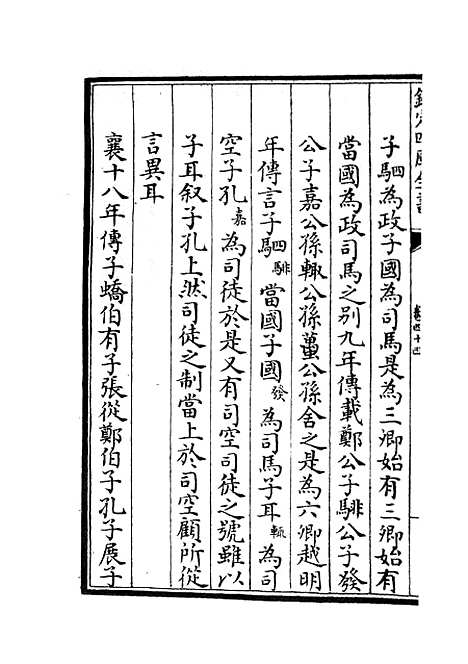 子駟為政子國為司馬是為三卿始有三卿始有
當國為政司馬之别九年傳載鄭公子騑公子發
公子嘉公孫輒公孫蠆公孫舍之是為六卿越明
年傳言子駟騑當國子國發為司馬子耳輒為司
空子孔嘉為司徒於是又有司空司徒之號雖以
子耳叙子孔上然司徒之制當上於司空顧所從
言異耳
襄十八年傳子蟜伯有子張從鄭伯子孔子展子